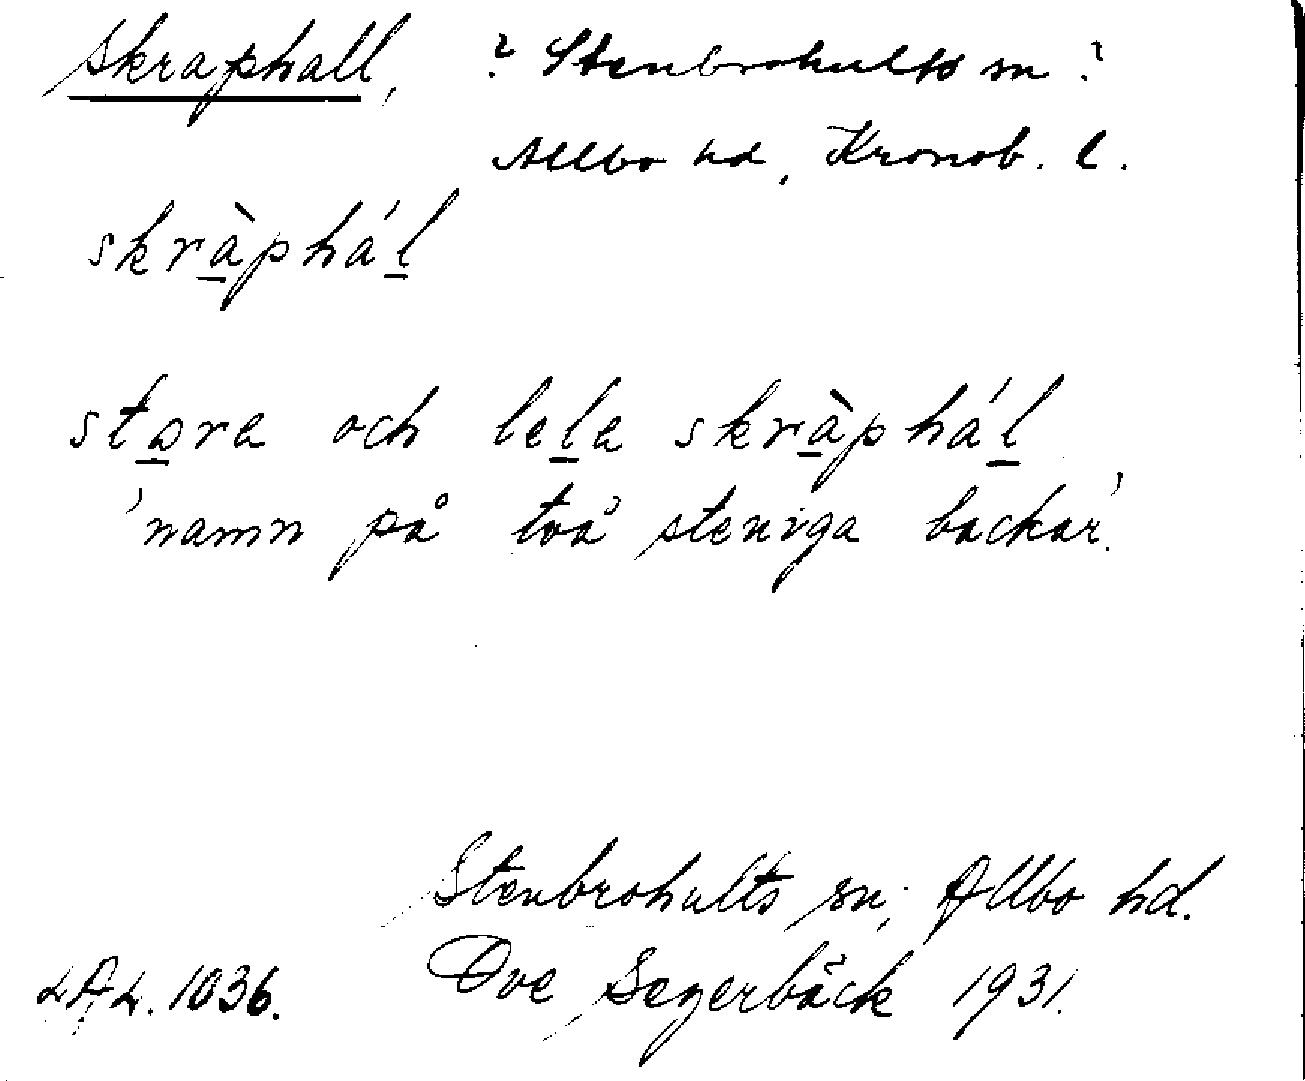 Skraphall, ? Stenbrohults sn ?
Allbo hd, Kronob. l.
skrà̲phál̲
sto̲ra och lel̲a skrà̲phál̲
'namn på två steniga backar'.
Stenbrohults sn, Allbo hd.
LAL. 1036. Ove Segerbäck 1931.